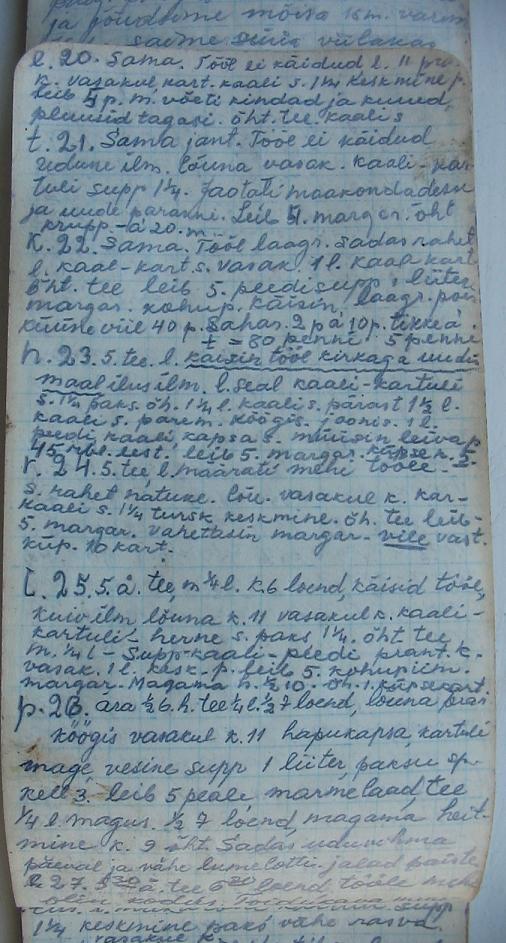 ja jõudsime mõisa 15 m. varem
saime süüa viilakas
E. 20. Sama. Tööl ei käidud l. 11
k. vasakul, kart. kaali s. 1¼ keskmine p.
leib 5 p. m. võeti kindad ja kuued,
pluusid tagasi. õht. tee, kaali s
T. 21. Sama jant. Tööle ei käidud
udune ilm. lõuna vasak. kaali-kar
tuli supp 1¼. Jaotati maakondadesse
ja uude paranni. Leib 5. margar. õht
krupp-a 20. m.
K. 22. Sama. Tööl laagr. Sadas rahet
l. kaal-kart s. vasak. 1 l. kaal kart
õht. tee leib 5. peedisupp 1 liiter
margar. kohup. käisin, laagr. pois
küüne viil 40 p. Sahar. 2 pa 10 p. tikke a
t = 80 penni 5 penni
N. 23. 5. tee. l. käisin tööl kirkaga uudis
maal ilus ilm. l. seal kaali-kartuli
s. 1¼ paks õh. 1¼ l. kaali s. pärast 1½ l.
kaali s. parem. köögis. 1 l.
peedi, kaali, kapsa s. müüsin leiva p
45 rbl. eest. leib 5. margar. küpse k.
R. 24. 5. tee, l. määrati mehi tööle.
s. rahet natuke. lõu. vasakul k. kar-
kaali s. 1¼ tursk keskmine. õh. tee leib-
5. margar. vahetasin margar- ville vast.
küp. 10 kart.
L. 25. 5. a. tee, m ¼ l. k. 6 loend, käisid tööl,
kuiv ilm lõuna k. 11 vasakul k. kaali-
kartuli- herne s. paks 1¼. õht. tee
m. ¼ l - Supp-kaali-peedi prant. k.
vasak. 1 l. kesk. p. leib 5. kohupiim.
margar. Magama k. ½ 10. õh. 1. küpsekart.
P. 26. ära ½ 6. h. tee ¼ l. ½ 7 loend, lõuna pras
köögis vasakul k. 11 hapukapsa, kartuli
mage, vesine supp 1 liiter, paksu sp.
kell 3. leib 5 peale marmelaad, tee
¼ l. magus. ½ 7 loend, magama heit-
mine k. 9 õht. Sadas uduvihma
päeval ja vähe lumelottu jalad paiste
E. 27. 5³⁰ a. tee 6²⁰ loend, tööle
1¼ keskmine paks vähe rasva.
vasakul k.